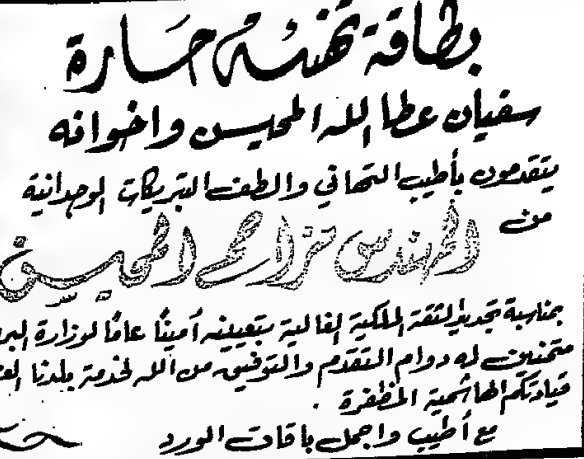 بطاقة تهنئة حارة
سفيان عطا الله المحيسن واخوانه
يتقدمون بأطيب التهاني والطف التبريكات الوجدانية
من
المهندس مزاحم المحيسن
بمناسبة تجديد الثقة الملكية الغالية بتعيينه أميناً عاماً لوزارة
متمنين له دوام التقدم والتوفيق من الله لخدمة بلدنا
قيادتكم الهاشمية المظفرة .
مع أطيب واجمل باقات الورد